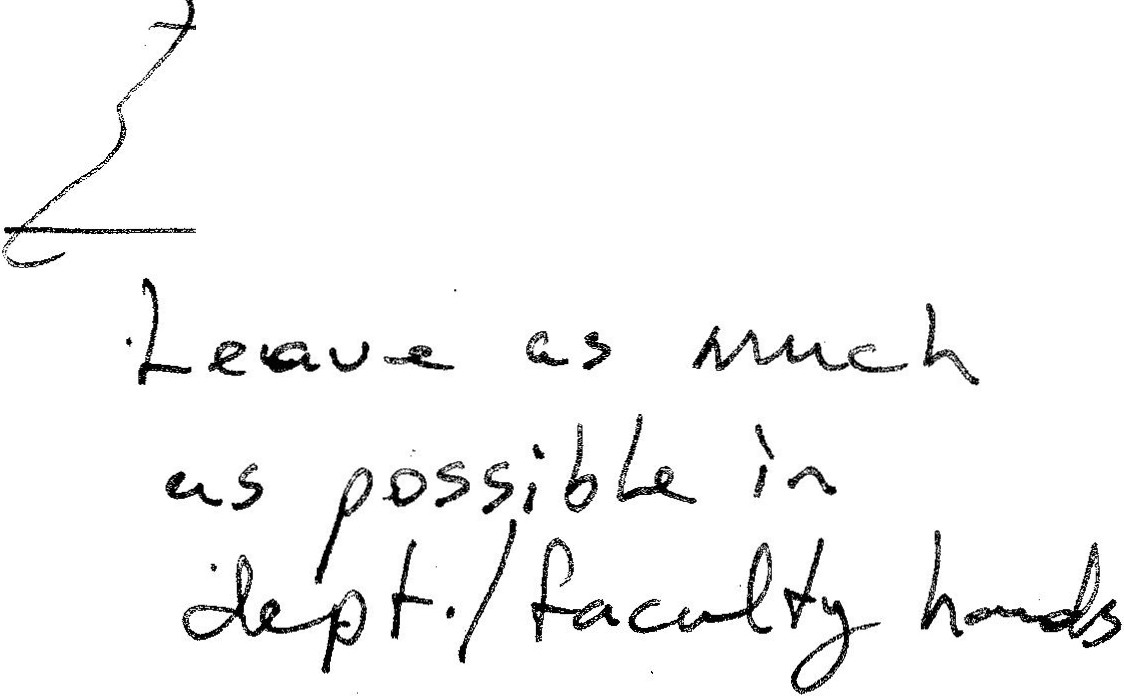 Leave as much
as possible in
dept./faculty hands